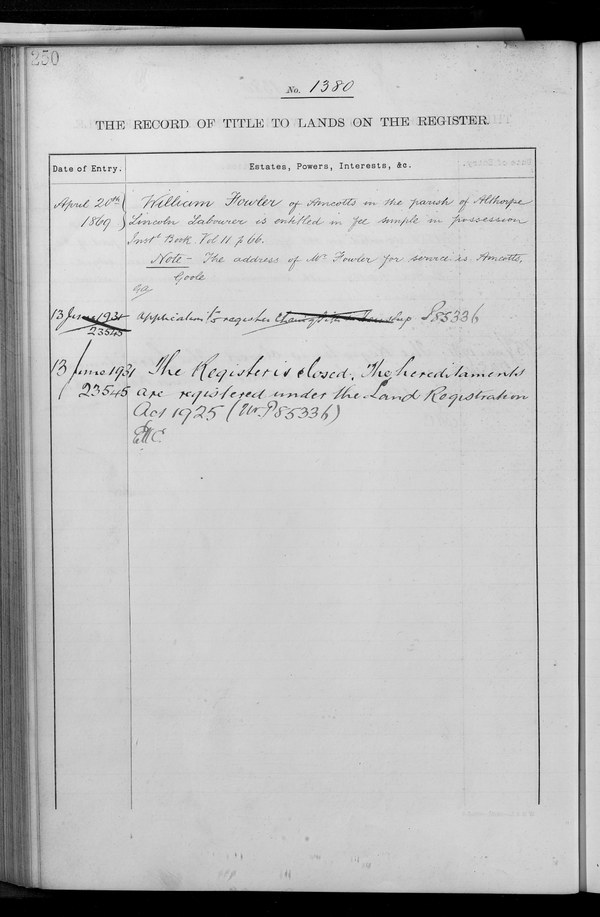 250
No. 1380
THE RECORD OF TITLE TO LANDS ON THE REGISTER.
Date of Entry.
Estates, Powers, Interests, &c.
April 20th
1869
William Fowler of Amcotts in the parish of Althorpe
Lincoln Labourer is entitled in fee simple in possession
Inst. Book Vol 11 p 66.
Note - The address of Mr Fowler for service is Amcotts,
Goole
13 June 1931
23545
Application to register P85336
13 June 1931
23545
The Register is closed. The hereditaments
are registered under the Land Registration
Act 1925 ( P85336)